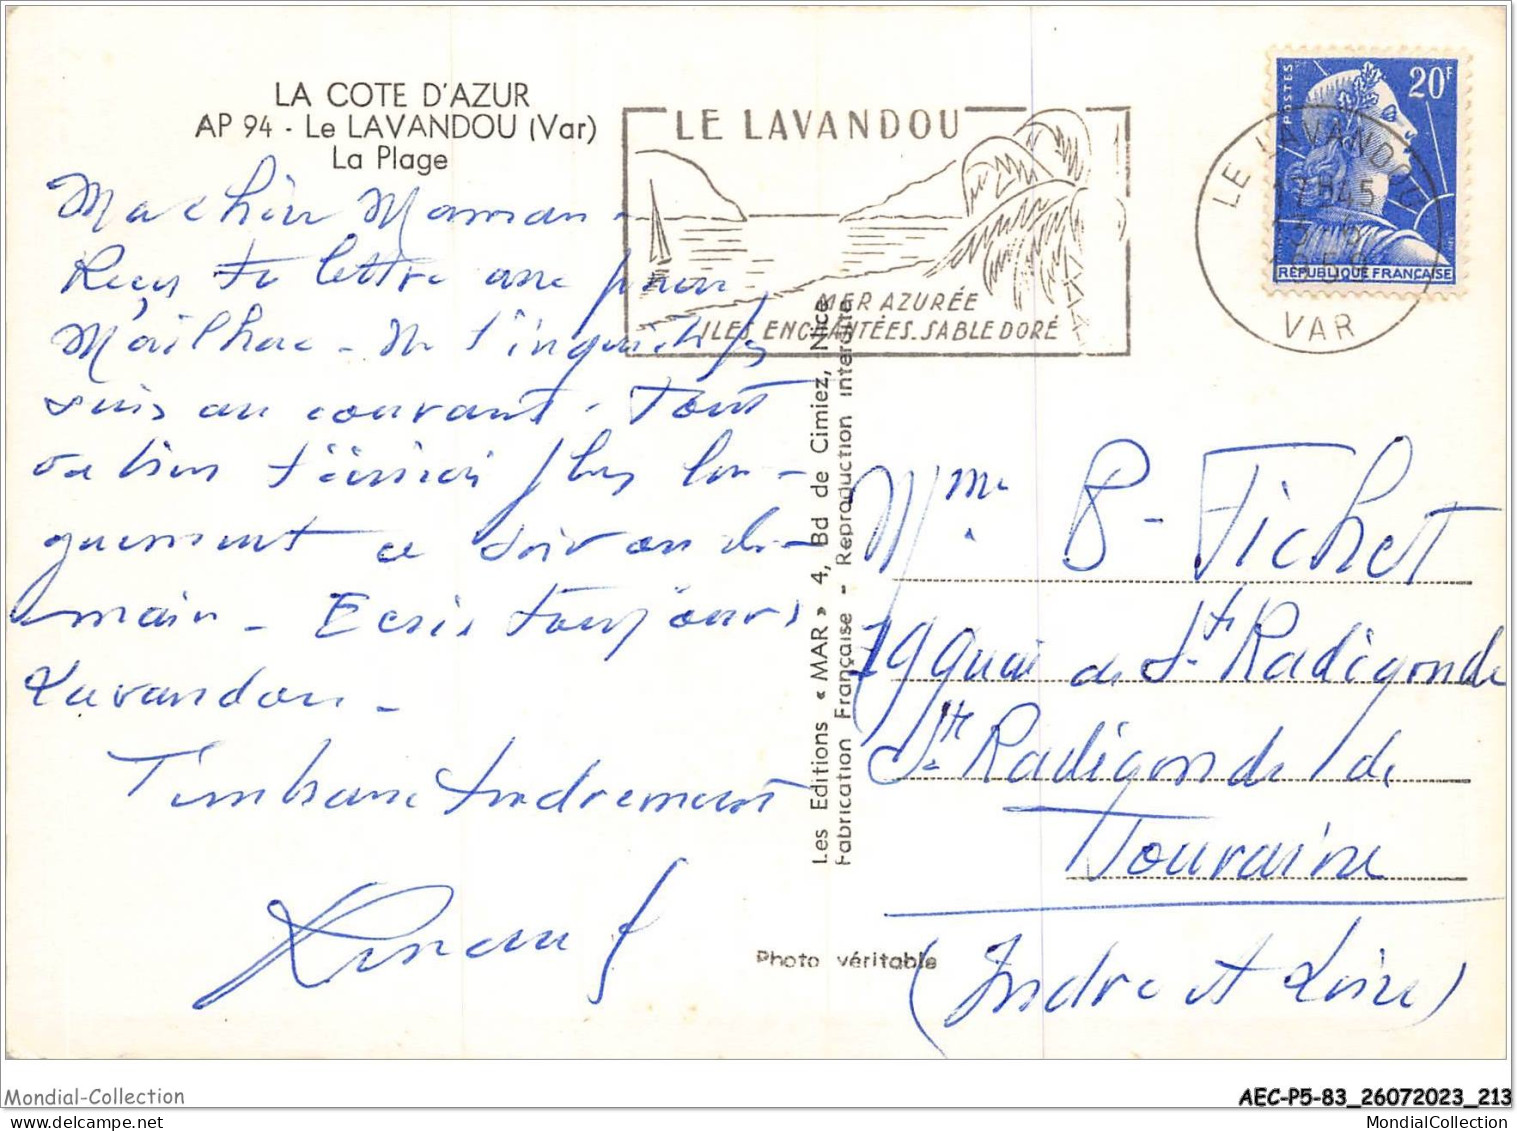 LA COTE D'AZUR
AP 94 - Le LAVANDOU (Var)
La Plage
LE LAVANDOU
MER AZURÉE
ILES ENCHANTÉES. SABLE DORÉ
POSTES
20F
RÉPUBLIQUE FRANÇAISE
LE LAVANDOU
17H45
VAR
Ma chère Maman -
Reçu ta lettre
Mailhac - Ne t'inquiète pas
suis au courant - Tout
va bien t'écrirai plus lon-
guement ce soir ou de-
main - Ecris toujours
Lavandou -
tendrement
Les Editions « MAR » 4, Bd de Cimiez, Nice
Fabrication Française - Reproduction interdite
Photo véritable
Mme B - Fichet
79 Quai de Ste Radigonde
Ste Radigonde de
Touraine
(Indre et Loire)
Mondial-Collection
AEC-P5-83_26072023_213
MondialCollection